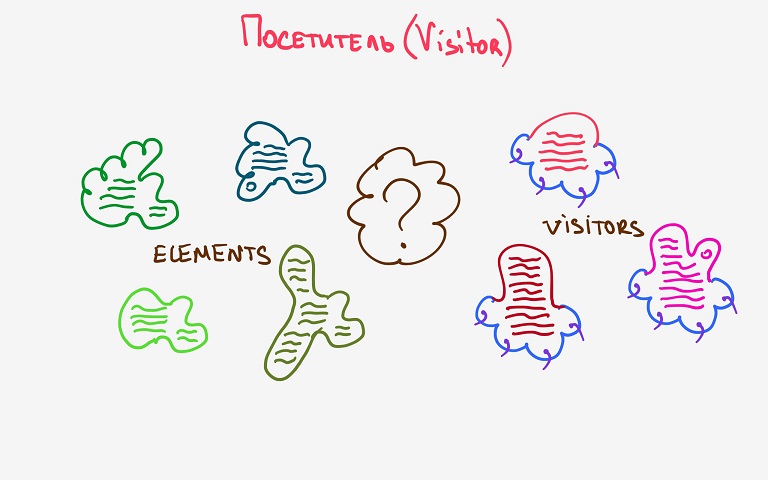 Посетитель (Visitor)
?
ELEMENTS
VISITORS